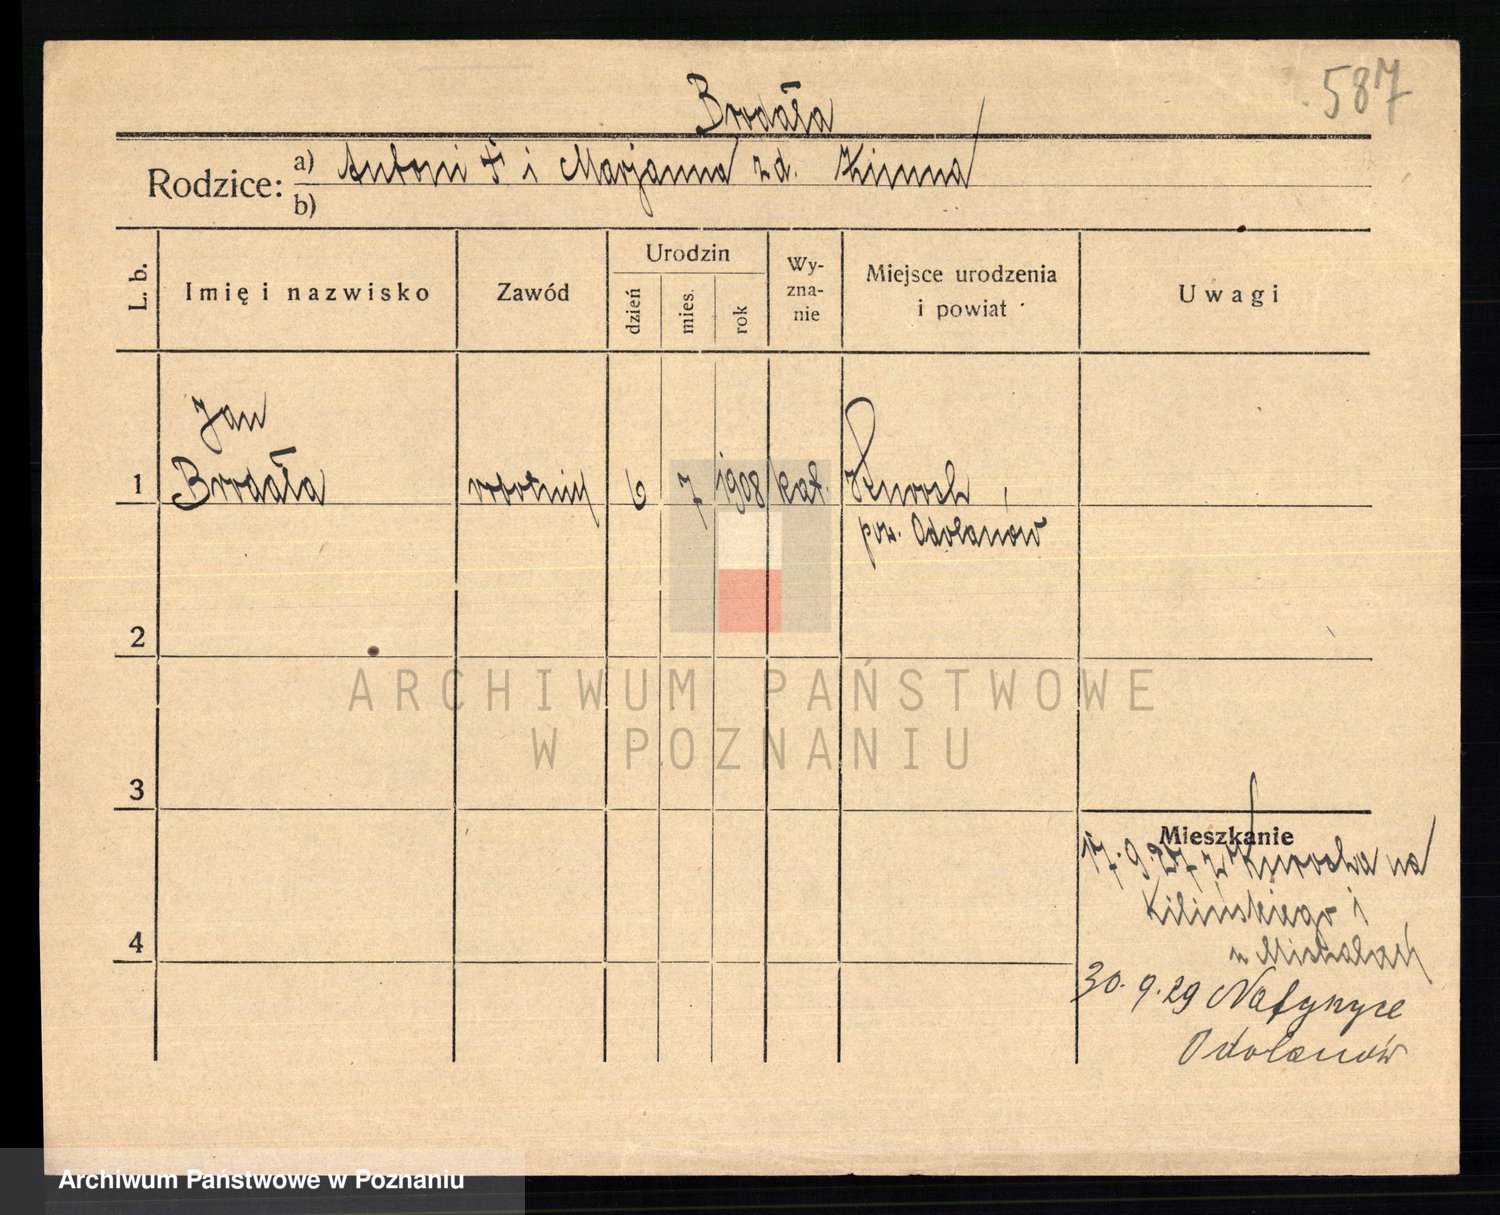 587
Brodała
Rodzice: a) Antoni † i Marjanna zd. Zimna
b)
L. b.
Imię i nazwisko
Zawód
Urodzin
dzień
mies.
rok
Wy-
zna-
nie
Miejsce urodzenia
i powiat
Uwagi
Jan
1 Brodała robotnik 6 7 1908 kat.
pow. Odolanów
2
ARCHIWUM PAŃSTWOWE
W POZNANIU
3
Mieszkanie
17.9.27 z na
Kilińskiego 1
4
30.9.29
Odolanów
Archiwum Państwowe w Poznaniu